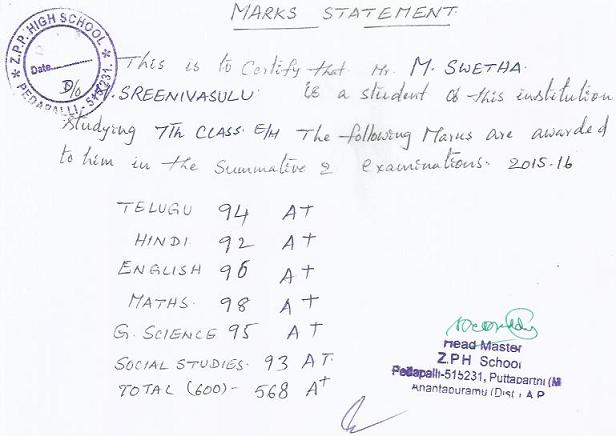 MARKS STATEMENT
Z.P.P. HIGH SCHOOL
Date
PEDAPALLI - 515231.
This is to Certify that Mr. M. SWETHA
D/o SREENIVASULU is a student of this institution
studying 7Th CLASS. E/M The following Marks are awarded
to him in the Summative 2 examinations. 2015-16
TELUGU 94 A+
HINDI. 92 A+
ENGLISH 96 A+
MATHS. 98 A+
G. SCIENCE 95 A+
SOCIAL STUDIES. 93 A+
TOTAL (600)- 568 A+
Head Master
Z.P.H School
Pedapalli-515231, Puttaparthi (M
Anantapuramu (Dist), A.P